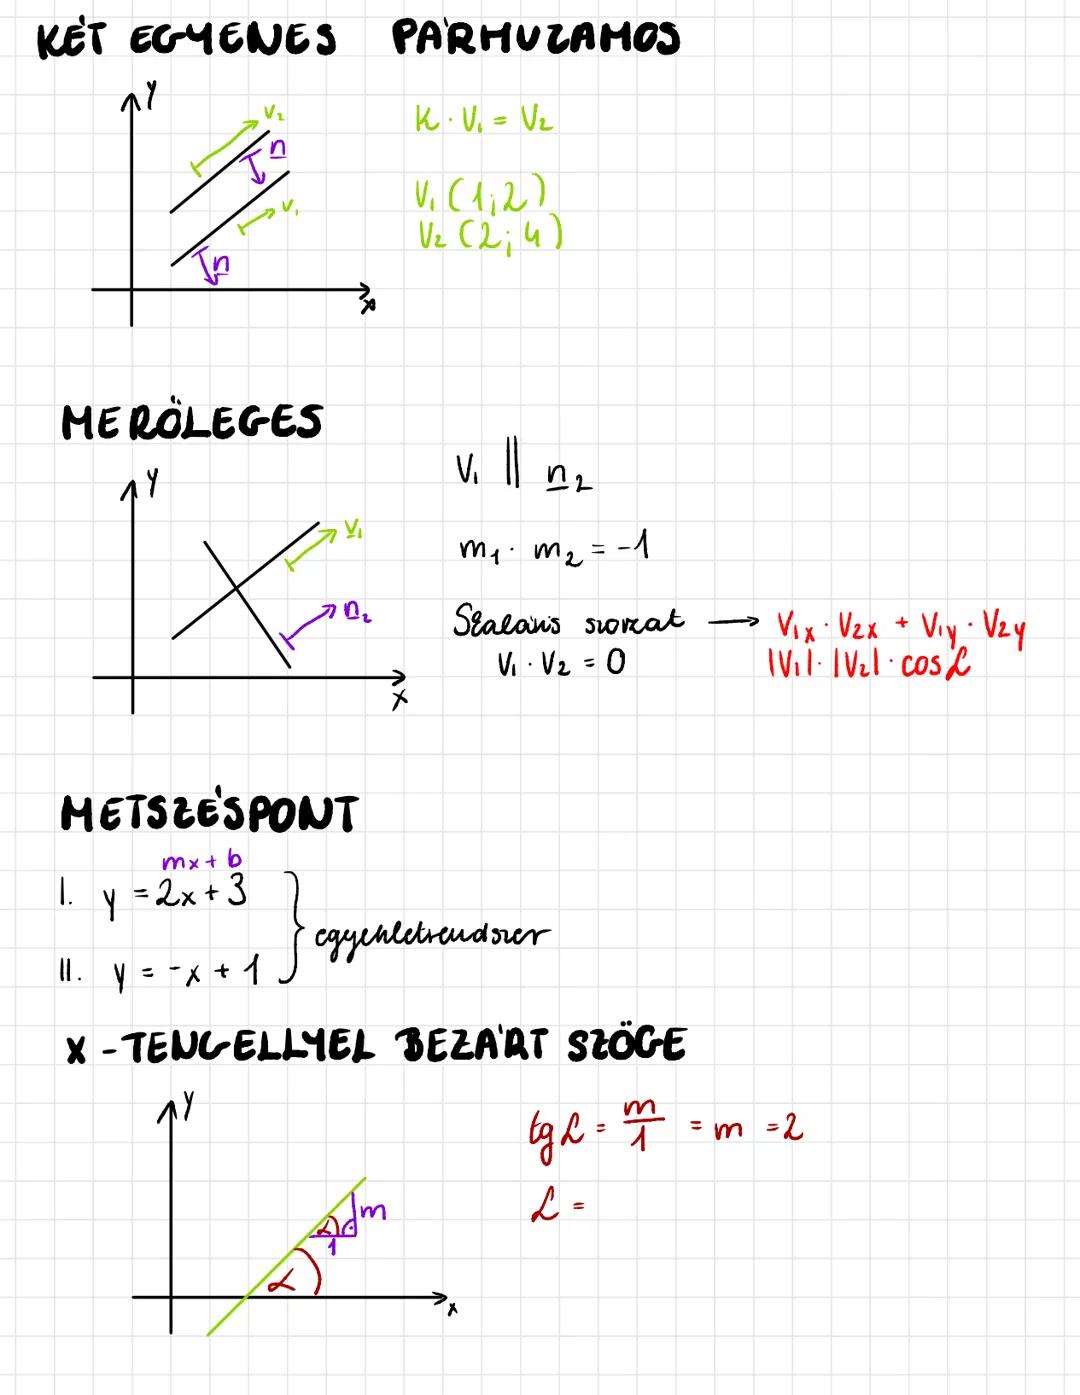 KÉT EGYENES PÁRHUZAMOS
Y
V₂
n
V₁
n
x
K · V₁ = V₂
V₁ (1;2)
V₂ (2;4)
MERŐLEGES
Y
V₁
n₂
X
V₁ || n₂
m₁ · m₂ = -1
Skaláris szorzat → V₁x · V₂x + V₁y · V₂y
V₁ · V₂ = 0
|V₁| · |V₂| · cos α
METSZÉSPONT
mx + b
I. y = 2x + 3
egyenletrendszer
II. y = -x + 1
X - TENGELLYEL BEZÁRT SZÖGE
Y
m
α
1
α
x
tg α = m/1 = m = 2
α =